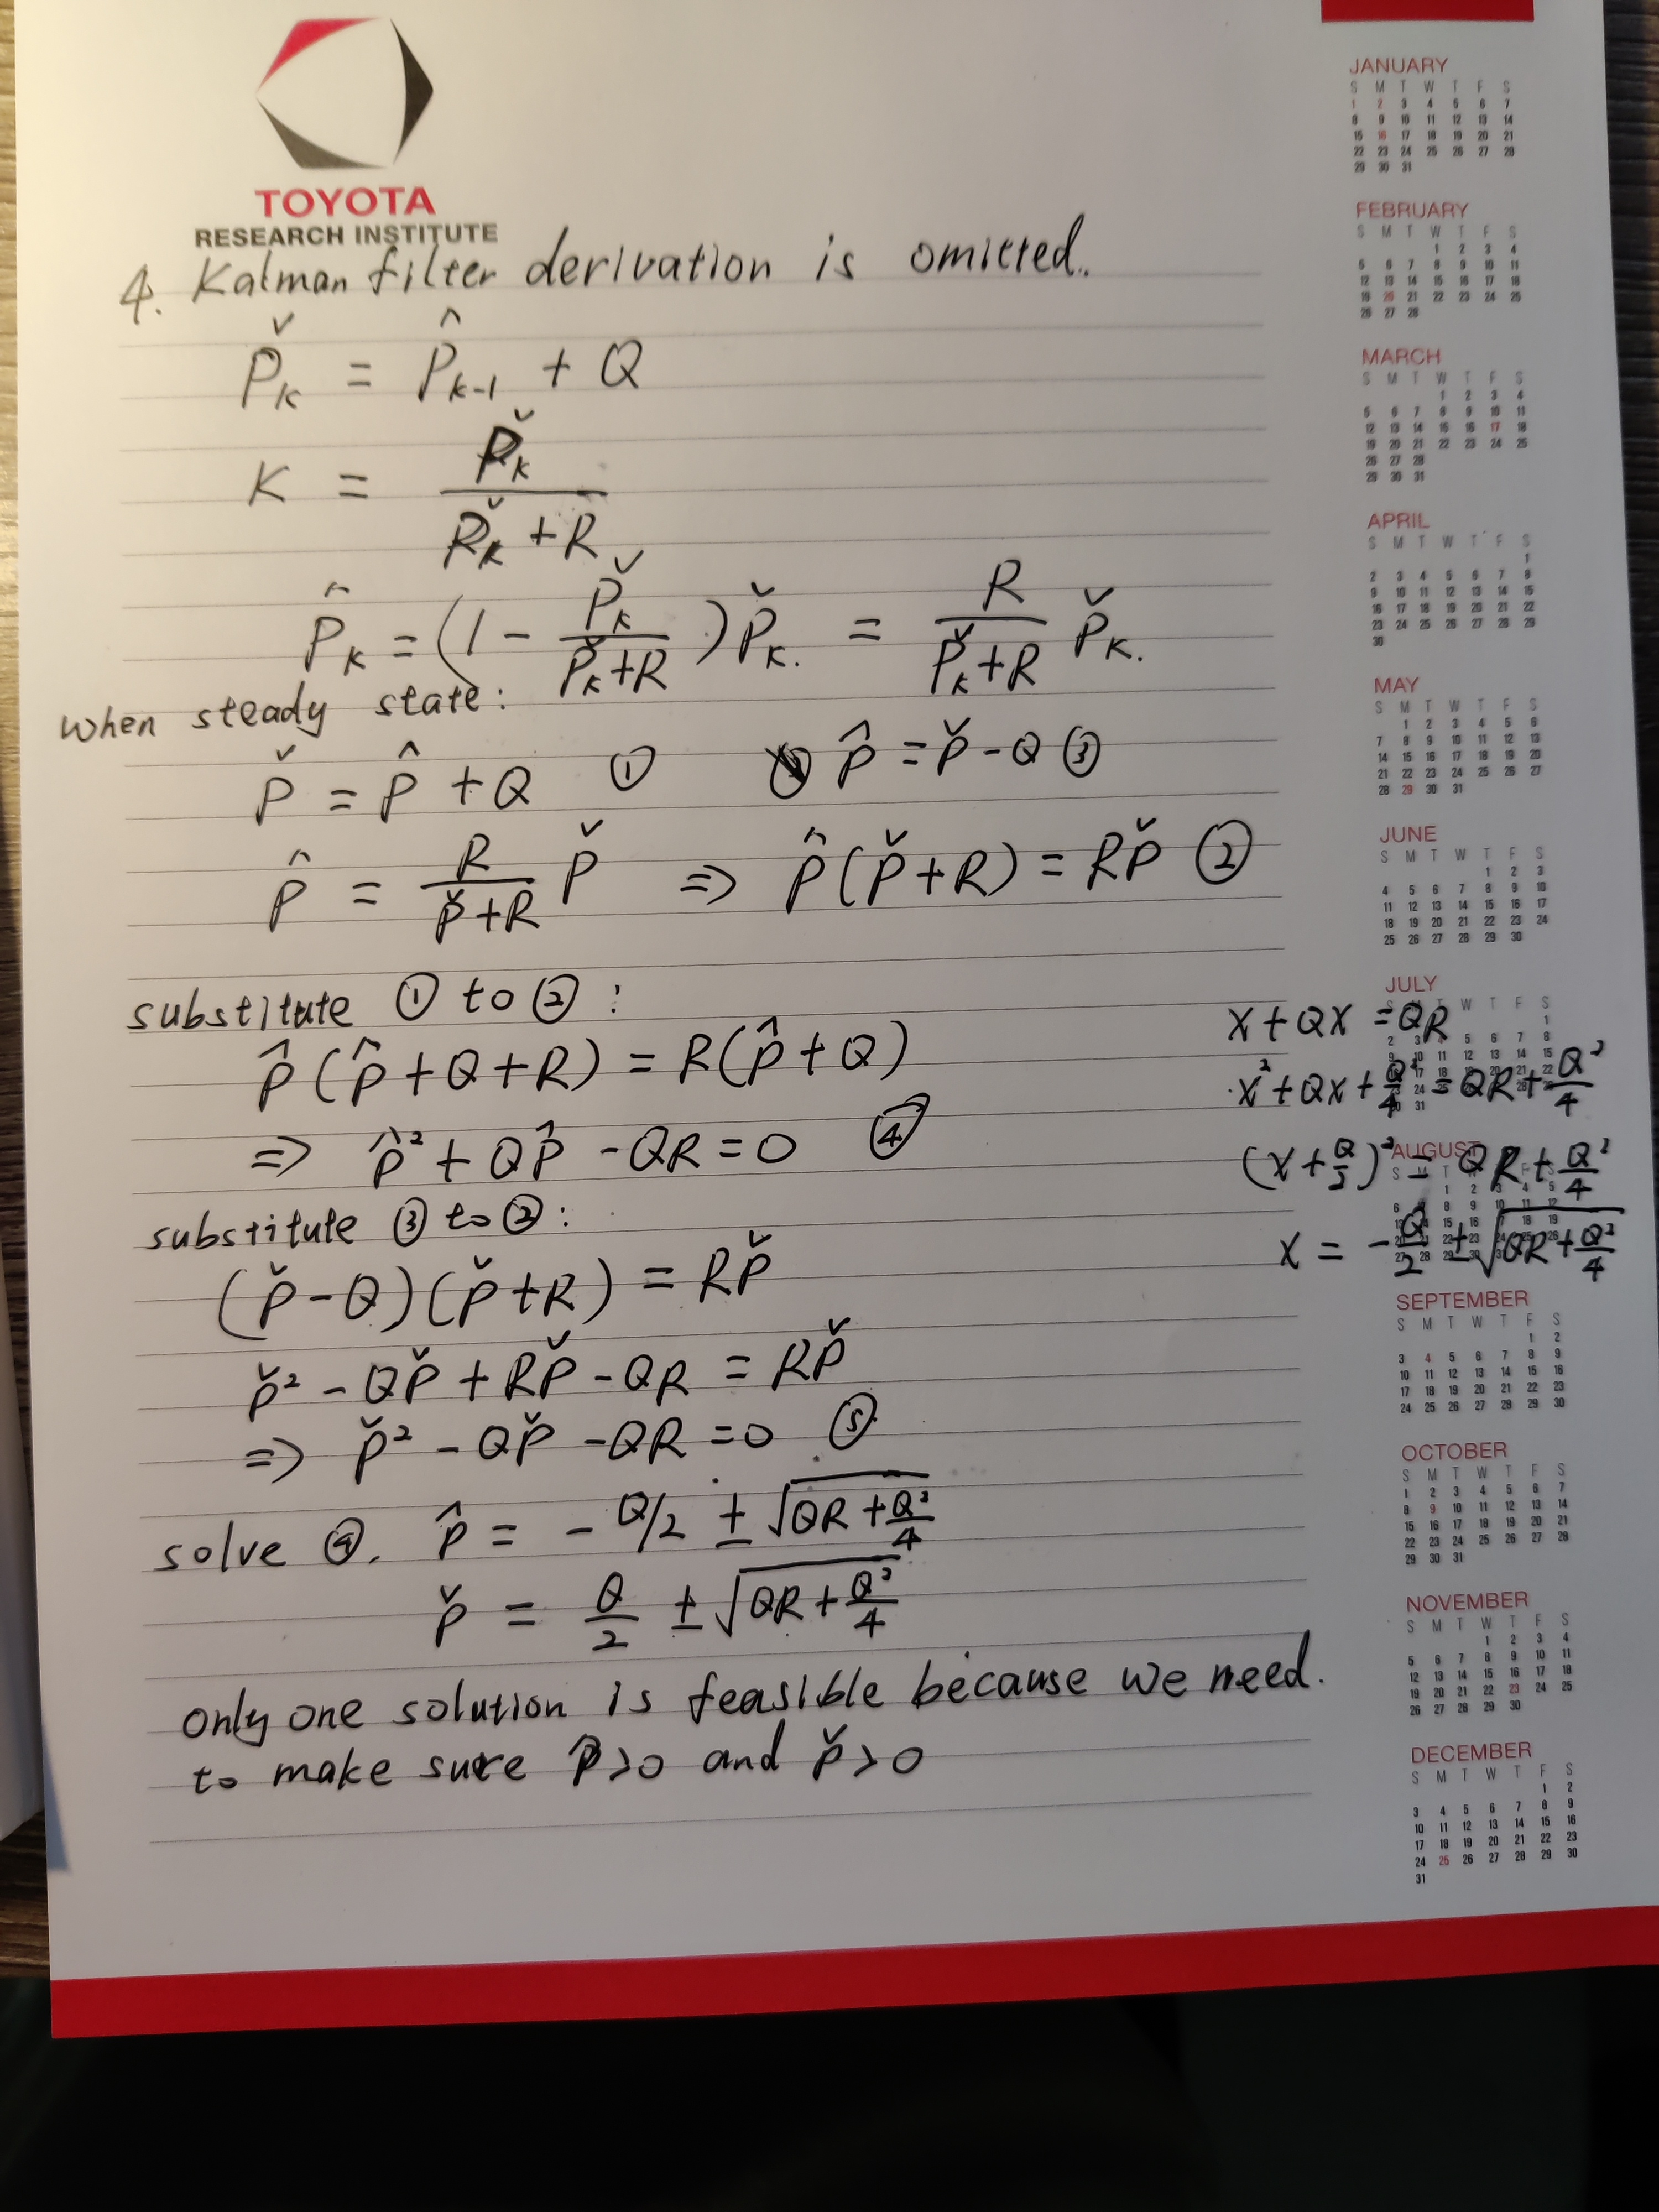 TOYOTA
RESEARCH INSTITUTE
4. Kalman filter derivation is omitted.
P̌ₖ = P̂ₖ₋₁ + Q
K = P̌ₖ / (Řₖ + R)
P̂ₖ = (1 - P̌ₖ / (P̌ₖ + R)) P̌ₖ. = R / (P̌ₖ + R) P̌ₖ.
when steady state:
P̌ = P̂ + Q ① P̂ = P̌ - Q ③
P̂ = R / (P̌ + R) P̌ => P̂(P̌ + R) = RP̌ ②
substitute ① to ② :
P̂(P̂ + Q + R) = R(P̂ + Q)
=> P̂² + QP̂ - QR = 0 ④
substitute ③ to ② :
(P̌ - Q)(P̌ + R) = RP̌
P̌² - QP̌ + RP̌ - QR = RP̌
=> P̌² - QP̌ - QR = 0 ⑤
solve ④. P̂ = - Q/2 ± √(QR + Q²/4)
P̌ = Q/2 ± √(QR + Q²/4)
only one solution is feasible because we need.
to make sure P̂>0 and P̌>0
x + Qx = QR
x² + Qx + Q²/4 = QR + Q²/4
(x + Q/2)² = QR + Q²/4
x = - Q/2 ± √(QR + Q²/4)
JANUARY
S M T W T F S
1 2 3 4 5 6 7
8 9 10 11 12 13 14
15 16 17 18 19 20 21
22 23 24 25 26 27 28
29 30 31
FEBRUARY
S M T W T F S
1 2 3 4
5 6 7 8 9 10 11
12 13 14 15 16 17 18
19 20 21 22 23 24 25
26 27 28
MARCH
S M T W T F S
1 2 3 4
5 6 7 8 9 10 11
12 13 14 15 16 17 18
19 20 21 22 23 24 25
26 27 28
29 30 31
APRIL
S M T W T F S
1
2 3 4 5 6 7 8
9 10 11 12 13 14 15
16 17 18 19 20 21 22
23 24 25 26 27 28 29
30
MAY
S M T W T F S
1 2 3 4 5 6
7 8 9 10 11 12 13
14 15 16 17 18 19 20
21 22 23 24 25 26 27
28 29 30 31
JUNE
S M T W T F S
1 2 3
4 5 6 7 8 9 10
11 12 13 14 15 16 17
18 19 20 21 22 23 24
25 26 27 28 29 30
JULY
AUGUST
SEPTEMBER
S M T W T F S
1 2
3 4 5 6 7 8 9
10 11 12 13 14 15 16
17 18 19 20 21 22 23
24 25 26 27 28 29 30
OCTOBER
S M T W T F S
1 2 3 4 5 6 7
8 9 10 11 12 13 14
15 16 17 18 19 20 21
22 23 24 25 26 27 28
29 30 31
NOVEMBER
S M T W T F S
1 2 3 4
5 6 7 8 9 10 11
12 13 14 15 16 17 18
19 20 21 22 23 24 25
26 27 28 29 30
DECEMBER
S M T W T F S
1 2
3 4 5 6 7 8 9
10 11 12 13 14 15 16
17 18 19 20 21 22 23
24 25 26 27 28 29 30
31